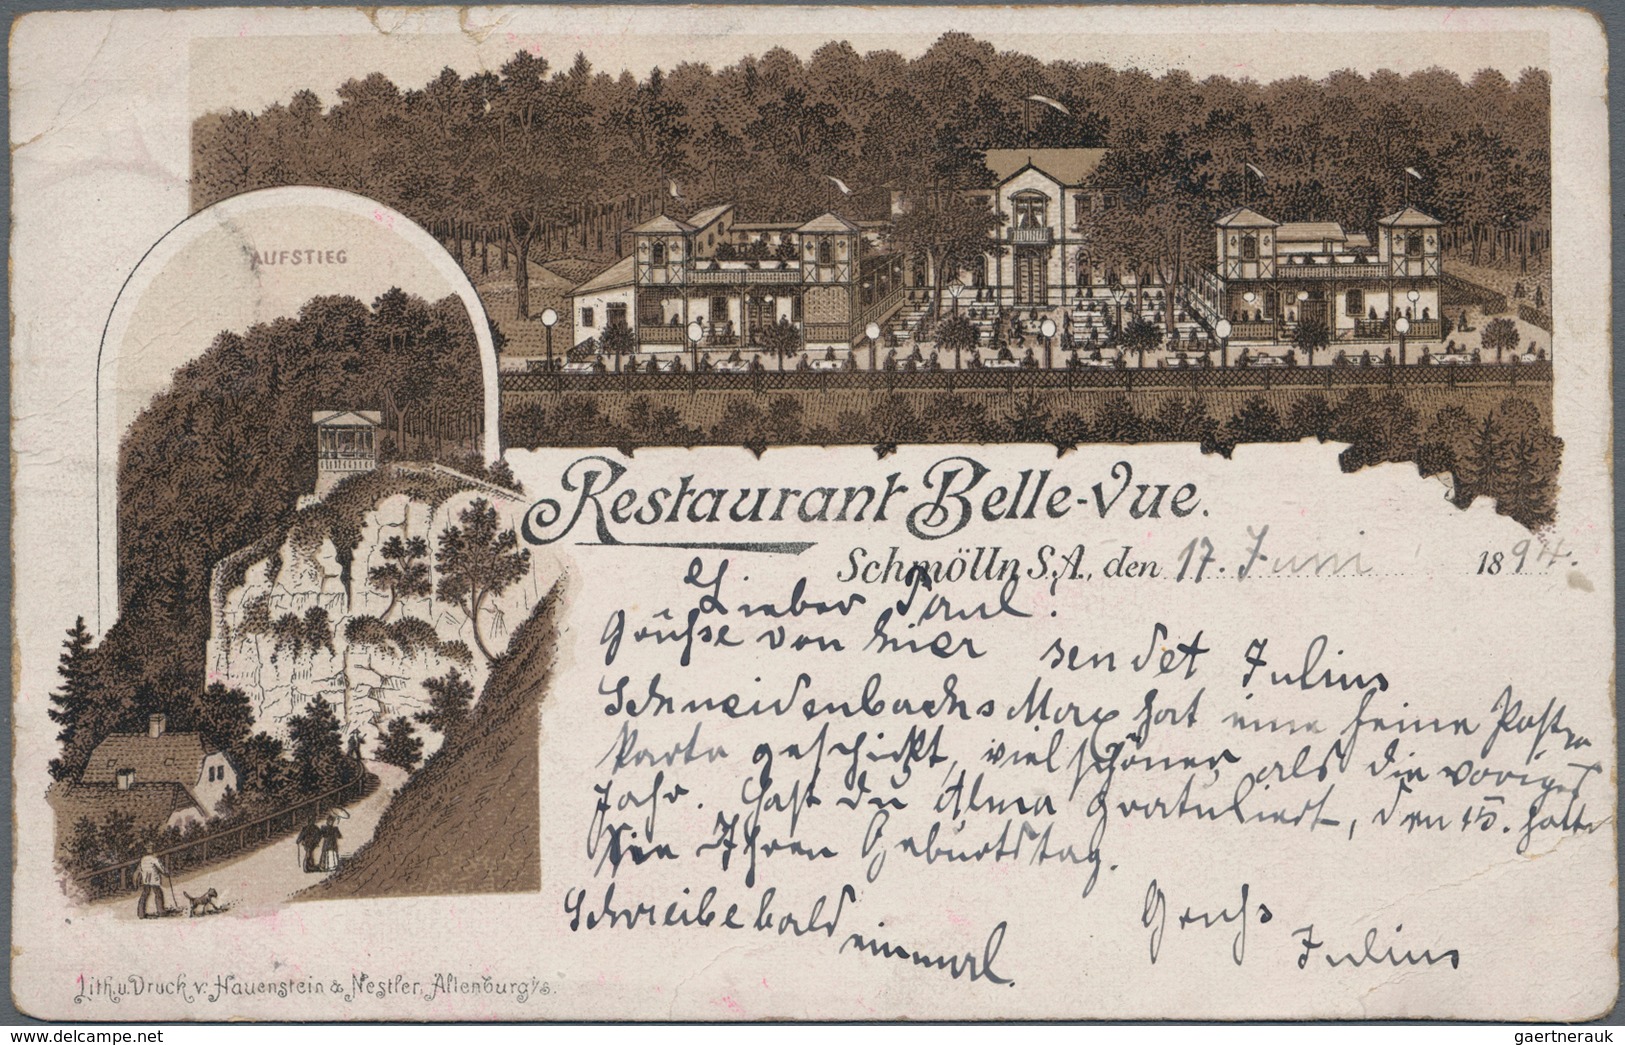 AUFSTIEG
Restaurant Belle-Vue.
Schmölln S.A., den 17. Juni 1894.
Lieber Paul.
Grüße von hier sendet Julius
Schneidenbachs Max hat eine feine Post
karte geschickt, viel schöner als die voriges
Jahr. Hast du Alma Gratuliert, den 15. hatte
Sie Ihren Geburtstag.
Schreibe bald einmal.
Gruß
Julius
Lith. u. Druck v. Hauenstein & Nestler, Altenburg i/S.
delcampe.net
gaertnerauk